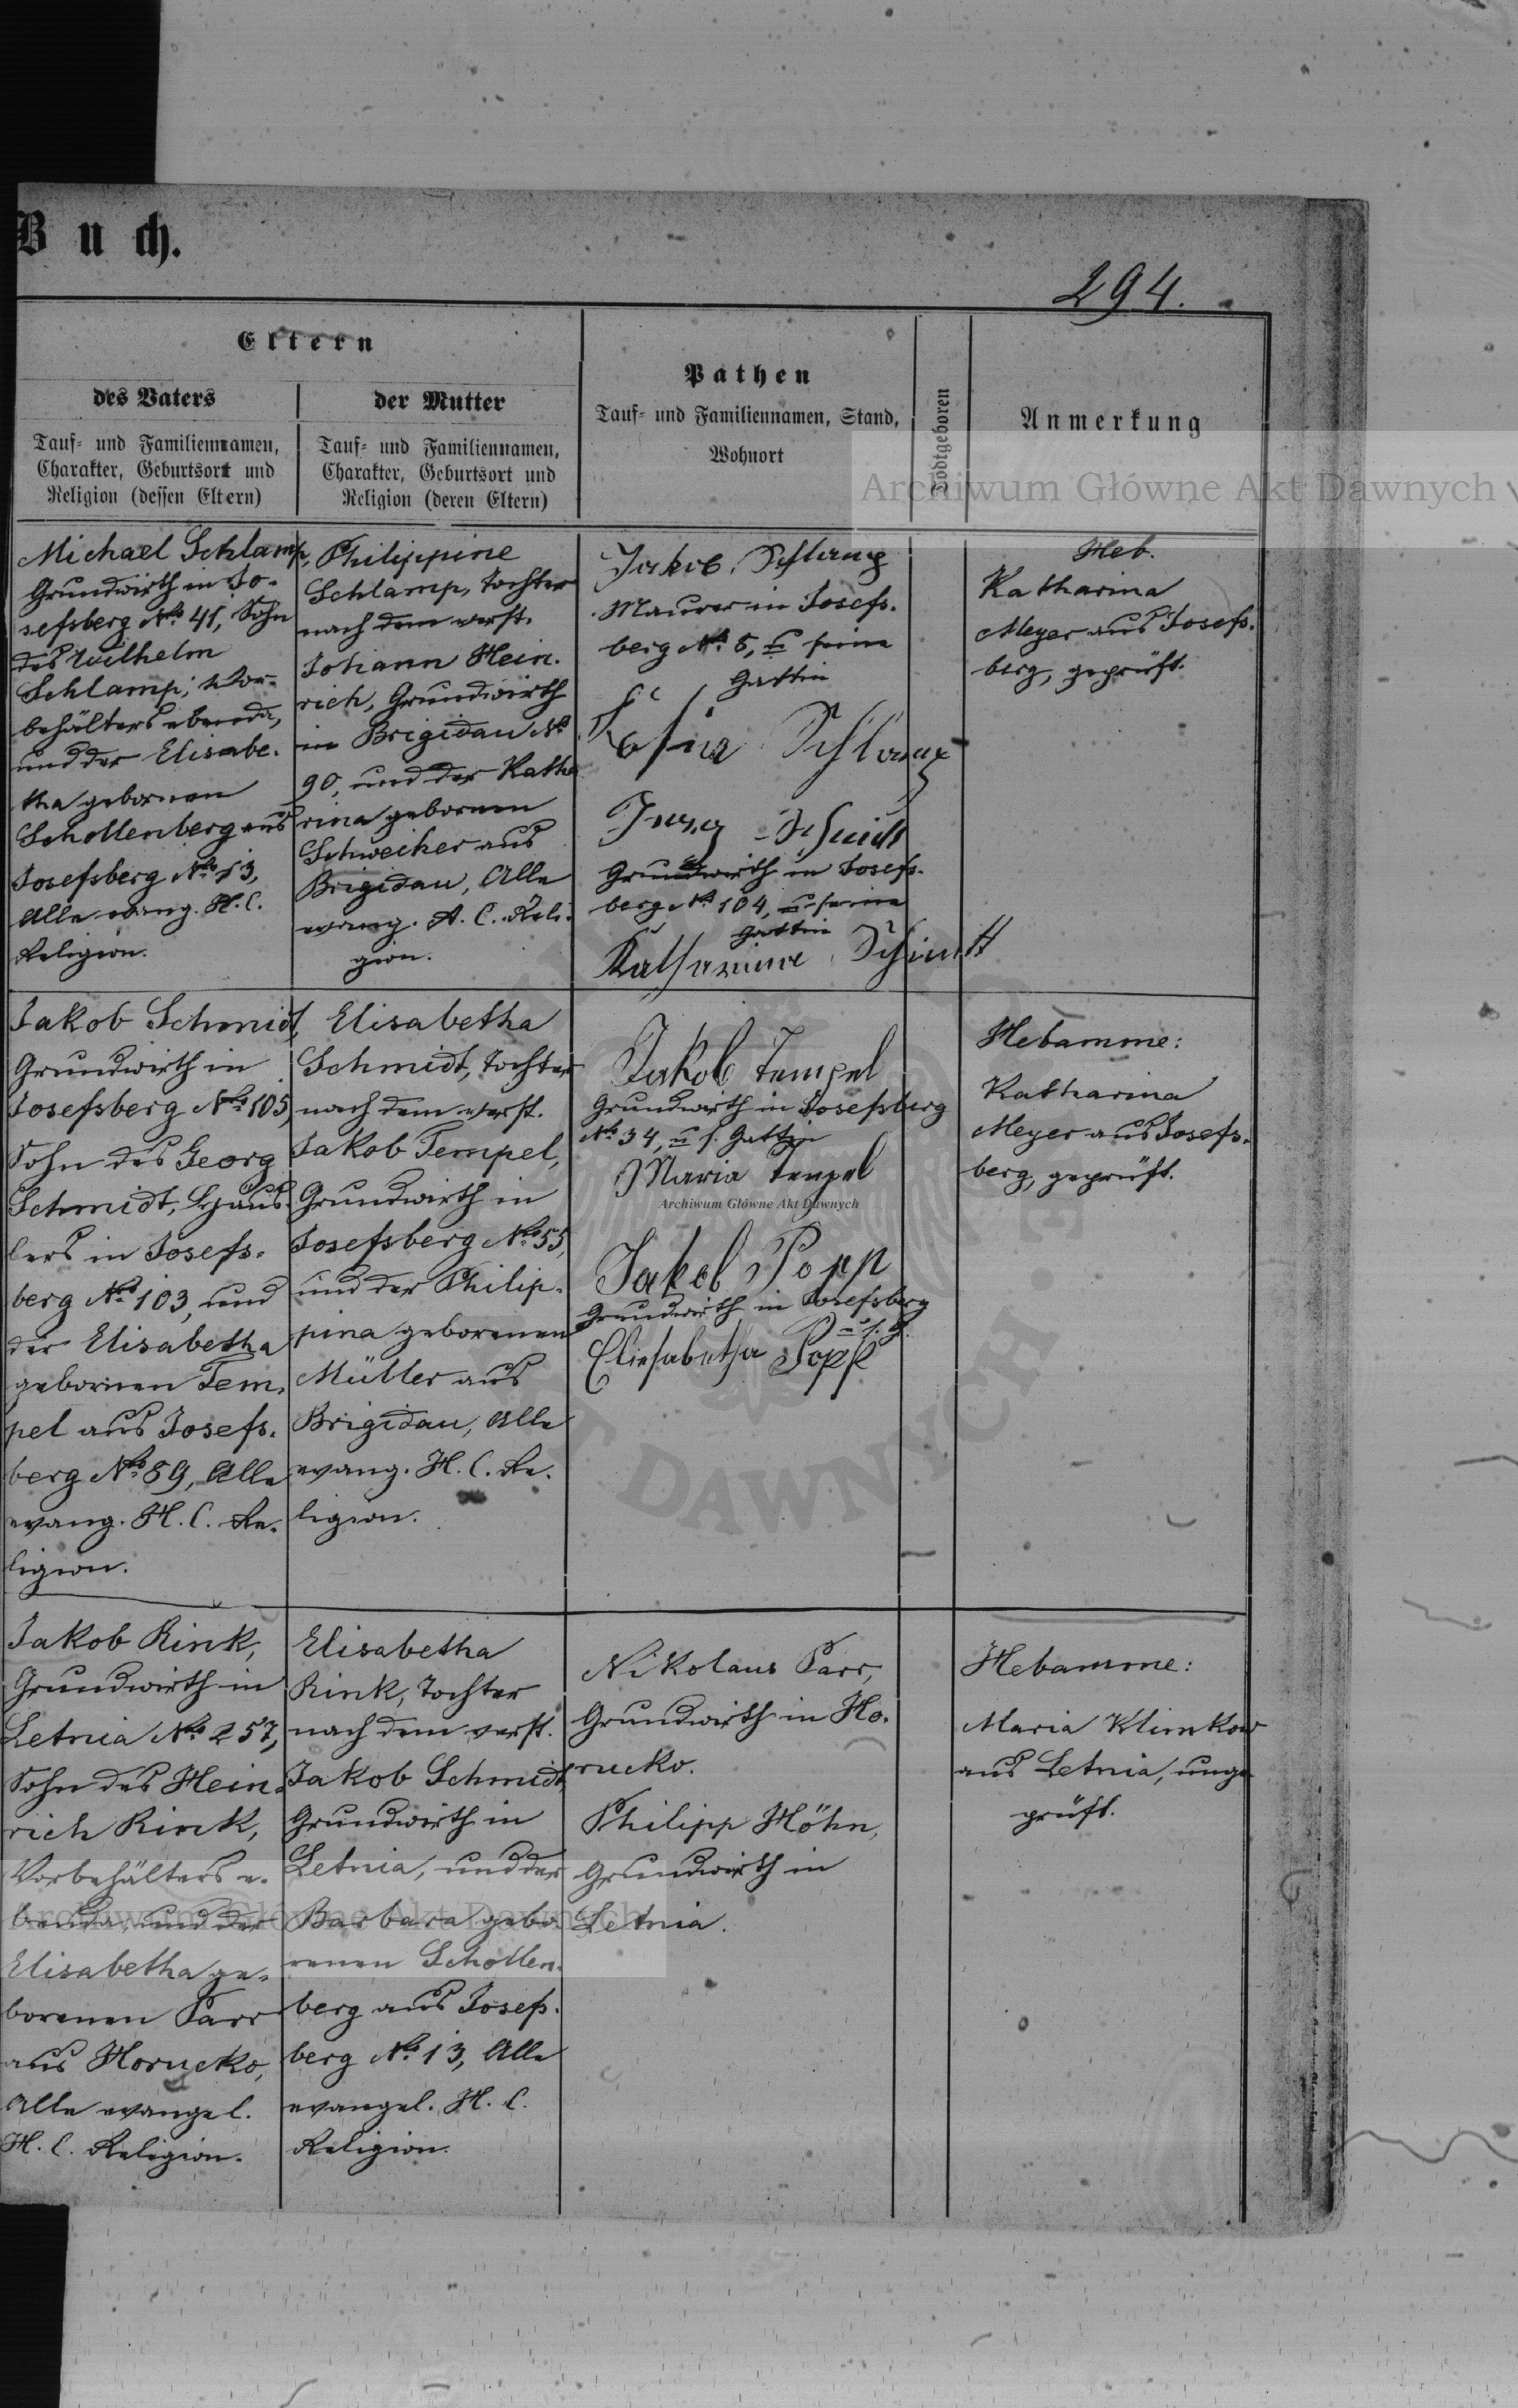 Buch.
294.
Eltern
des Vaters
Tauf- und Familiennamen,
Charakter, Geburtsort und
Religion (dessen Eltern)
der Mutter
Tauf- und Familiennamen,
Charakter, Geburtsort und
Religion (deren Eltern)
Pathen
Tauf- und Familiennamen, Stand,
Wohnort
Todtgeboren
Anmerkung
Archiwum Główne Akt Dawnych
Michael Schlamp,
Grundwirth in Jo-
sefsberg No. 41, Sohn
des Wilhelm
Schlamp, Vor-
behälters ebenda,
und der Elisabe-
tha gebornen
Schollenberg aus
Josefsberg No. 13,
Alle evang. H. C.
Religion.
Philippine
Schlamp, Tochter
nach dem verst.
Johann Hein-
rich, Grundwirth
in Brigidau No
90, und der Katha
rina gebornen
Schweiker aus
Brigidau, Alle
evang. A. C. Reli-
gion.
Jakob
Maurer in Josefs-
berg No. 8, u seine
Gattin
Grundwirth in Josefs-
berg No. 104, u seine
Gattin
Katharina Schmitt
Heb.
Katharina
Meyer aus Josefs-
berg, geprüft.
Jakob Schmidt,
Grundwirth in
Josefsberg No. 105,
Sohn des Georg
Schmidt, Häus-
lers in Josefs-
berg No. 103, und
der Elisabetha
gebornen Tem-
pel aus Josefs-
berg No. 89, Alle
evang. H. C. Re-
ligion.
Elisabetha
Schmidt, Tochter
nach dem verst.
Jakob Tempel,
Grundwirth in
Josefsberg No. 55,
und der Philip-
pina geborenen
Müller aus
Brigidau, Alle
evang. H. C. Re-
ligion.
Jakob Tempel
Grundwirth in Josefsberg
No. 34, u s. Gattin
Maria Tempel
Archiwum Główne Akt Dawnych
Jakob Popp
Grundwirth in Josefsberg
u s. G.
Eliesabetha Popp
Hebamme:
Katharina
Meyer aus Josefs-
berg, geprüft.
Jakob Rink,
Grundwirth in
Letnia No. 257,
Sohn des Hein-
rich Rink,
Vorbehälters e-
benda, und der
Elisabetha ge-
borenen Parr
aus Horucko,
Alle evangel.
H. C. Religion.
Elisabetha
Rink, Tochter
nach dem verst.
Jakob Schmidt,
Grundwirth in
Letnia, und der
Barbara gebo-
renen Schollen-
berg aus Josefs-
berg No. 13, Alle
evangel. H. C.
Religion.
Nikolaus Parr,
Grundwirth in Ho-
rucko.
Philipp Höhn,
Grundwirth in
Letnia.
Hebamme:
Maria Klimkow
aus Letnia, unge
prüft.
Archiwum Główne Akt Dawnych